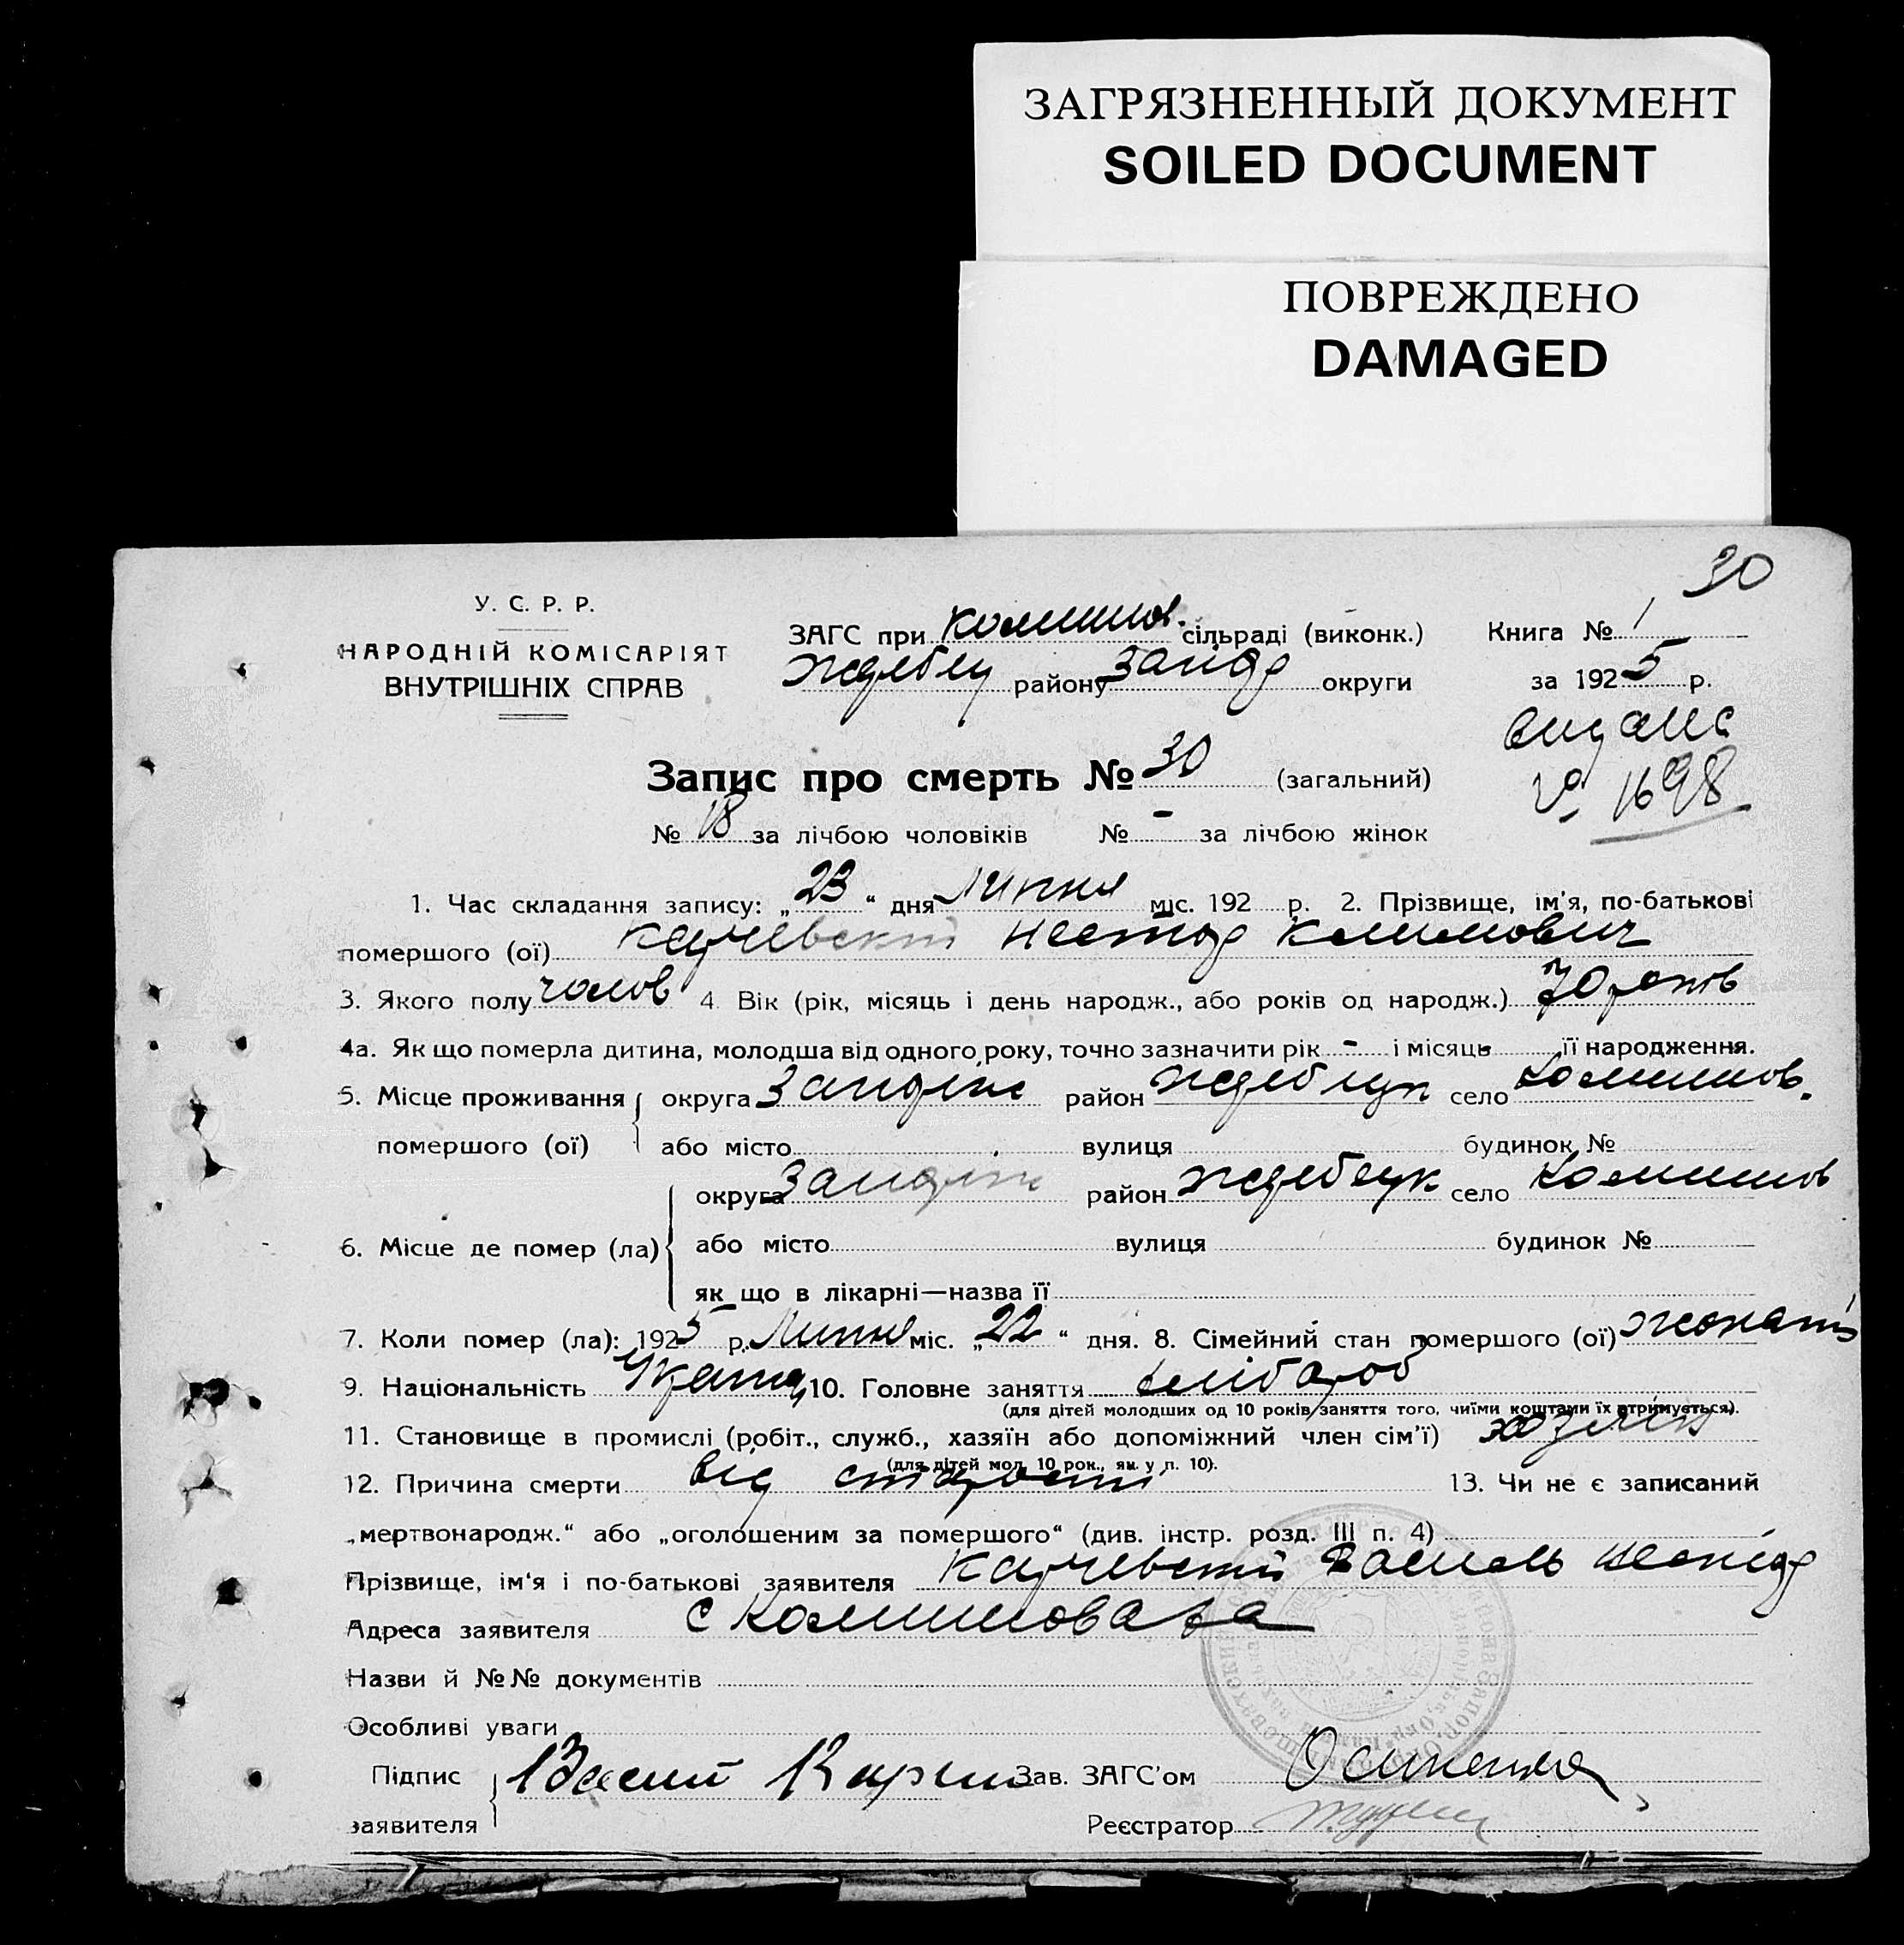 ЗАГРЯЗНЕННЫЙ ДОКУМЕНТ
SOILED DOCUMENT
ПОВРЕЖДЕНО
DAMAGED
30
У. С. Р. Р.
НАРОДНІЙ КОМІСАРІЯТ
ВНУТРІШНІХ СПРАВ
ЗАГС при Комишов. сільраді (виконк.)
району округи
Книга № 1
за 1925 р.
видано
№ 1698
Запис про смерть № 30 (загальний)
№ 18 за лічбою чоловіків № - за лічбою жінок
1. Час складання запису: „23“ дня Липня міс. 192 р. 2. Прізвище, ім'я, по-батькові
помершого (ої) Нестор Климович
3. Якого полу чолов 4. Вік (рік, місяць і день народж., або років од народж.) 70 років
4а. Як що померла дитина, молодша від одного року, точно зазначити рік - і місяць її народження.
5. Місце проживання помершого (ої) округа район село Комишов.
або місто вулиця будинок №
6. Місце де помер (ла) округа район село Комишов
або місто вулиця будинок №
як що в лікарні—назва її
7. Коли помер (ла): 1925 р. Липня міс. „22“ дня. 8. Сімейний стан помершого (ої) жонатий
9. Національність 10. Головне заняття хлібороб
(для дітей молодших од 10 років заняття того, чиїми коштами їх втримується).
11. Становище в промислі (робіт., служб., хазяїн або допоміжний член сім'ї) хозяїн
(для дітей мол. 10 рок., як у п. 10).
12. Причина смерти від старости 13. Чи не є записаний
„мертвонародж.“ або „оголошеним за помершого“ (див. інстр. розд. III п. 4)
Прізвище, ім'я і по-батькові заявителя Василь Нестор
Адреса заявителя с Комишоваха
Назви й №№ документів
Особливі уваги
Підпис заявителя Зав. ЗАГС'ом
Реєстратор